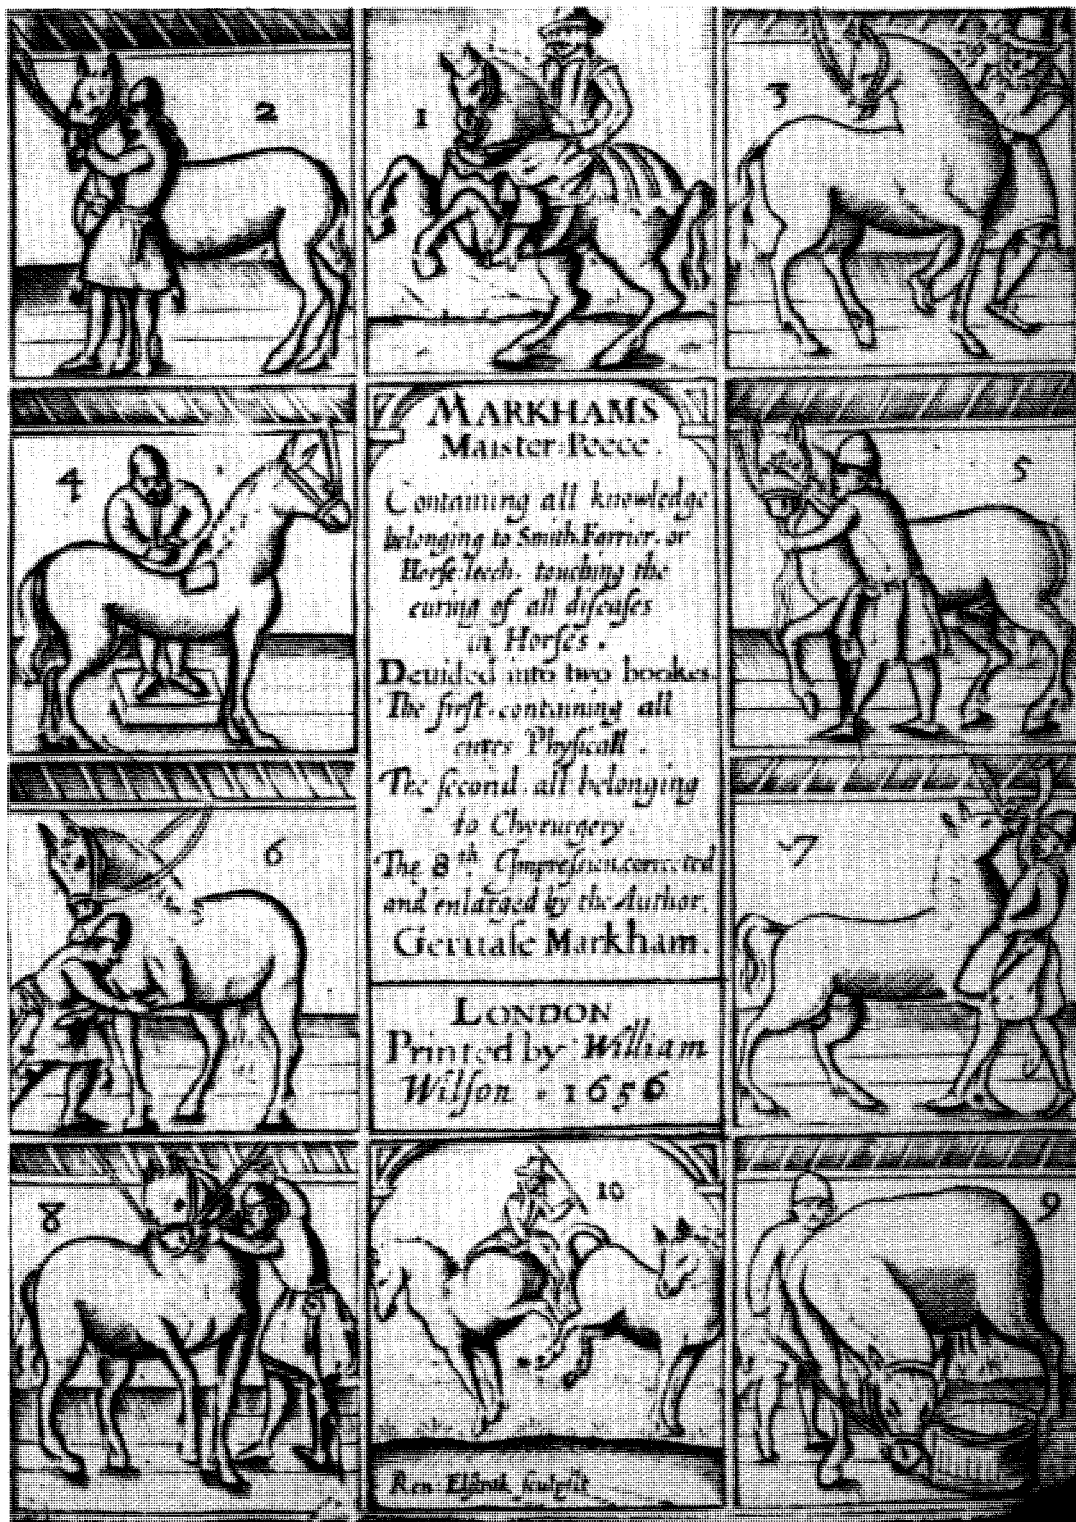 2
1
3
MARKHAMS
Maister-Peece.
Containing all knowledge
belonging to Smith, Farrier, or
Horse-leech, touching the
curing of all diseases
in Horses.
Deuided into two bookes.
The first, containing all
cures Physicall.
The second, all belonging
to Chyrurgery.
The 8th Impression, corrected
and enlarged by the Author.
Geruase Markham.
LONDON
Printed by William
Wilson. 1656
4
5
6
7
8
10
9
Ren: Elstrak sculpsit